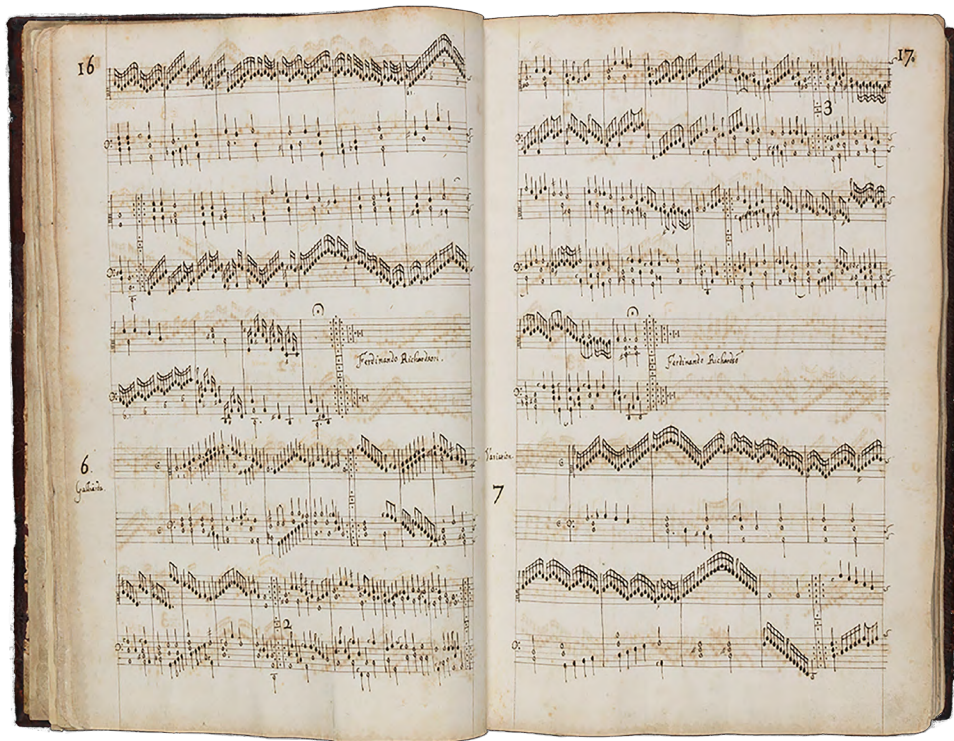 16
Ferdinando Richardson.
6.
Galiarda.
2
17.
3
Ferdinando Richardsõ
Variatio.
7